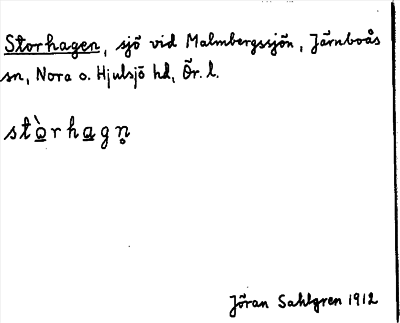 Storhagen, sjö vid Malmbergssjön, Järnboås
sn, Nora o. Hjulsjö hd, Ör. l.
stò̲rha̲gn̥
Jöran Sahlgren 1912